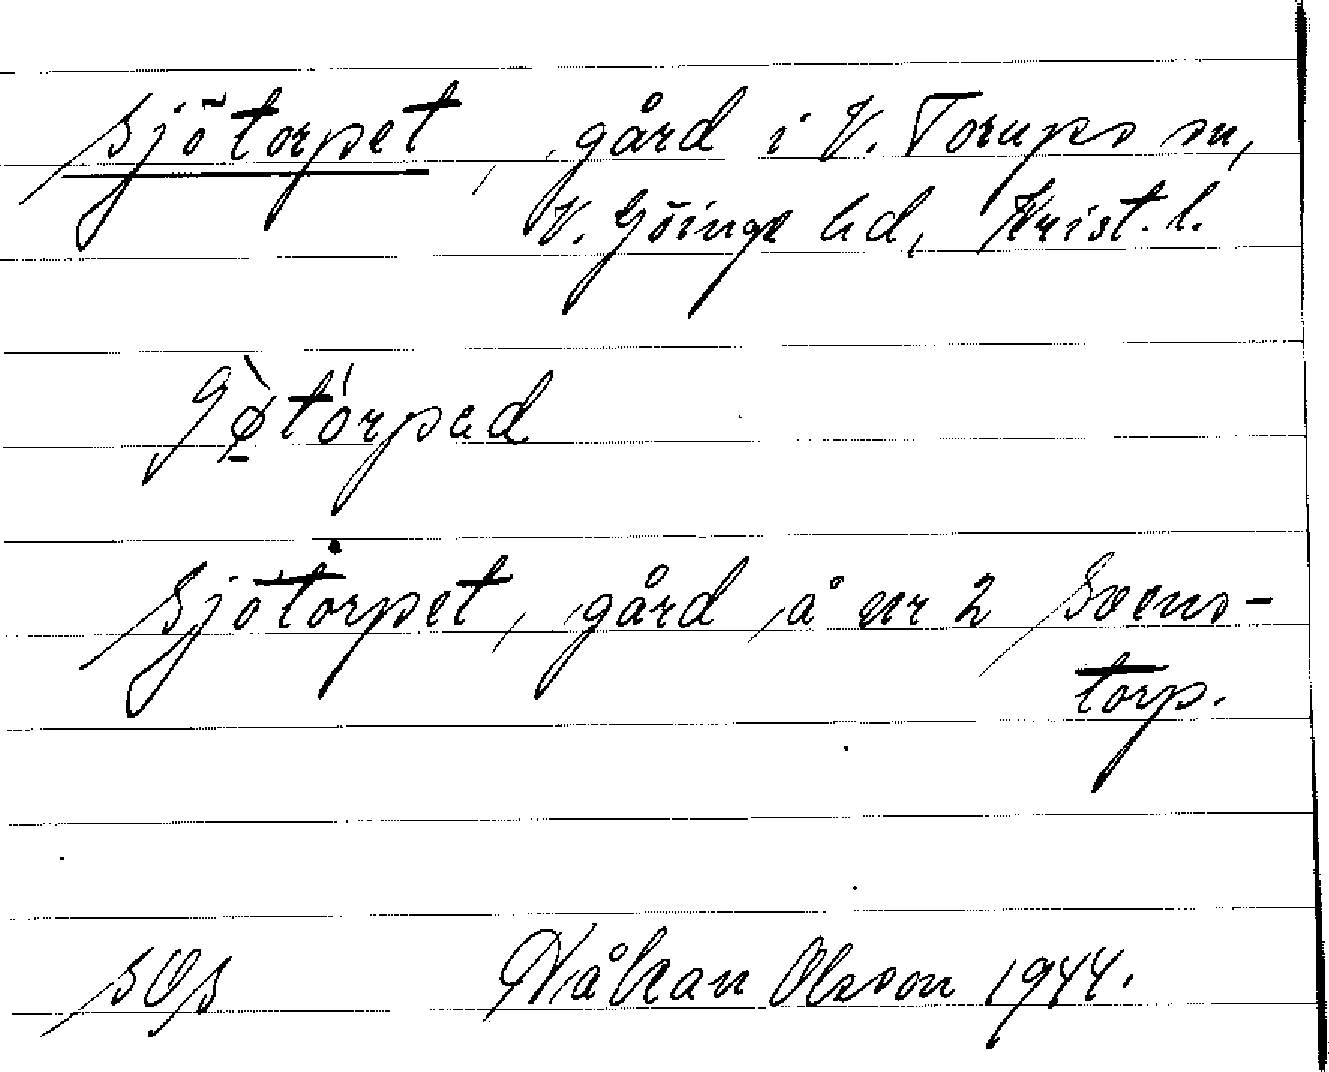 Sjötorpet, gård i V. Torups sn,
V. Göinge hd, Krist. l.
Sjötorpet, gård å nr 2 Svens-
torp.
SOS Håkan Olsson 1944.